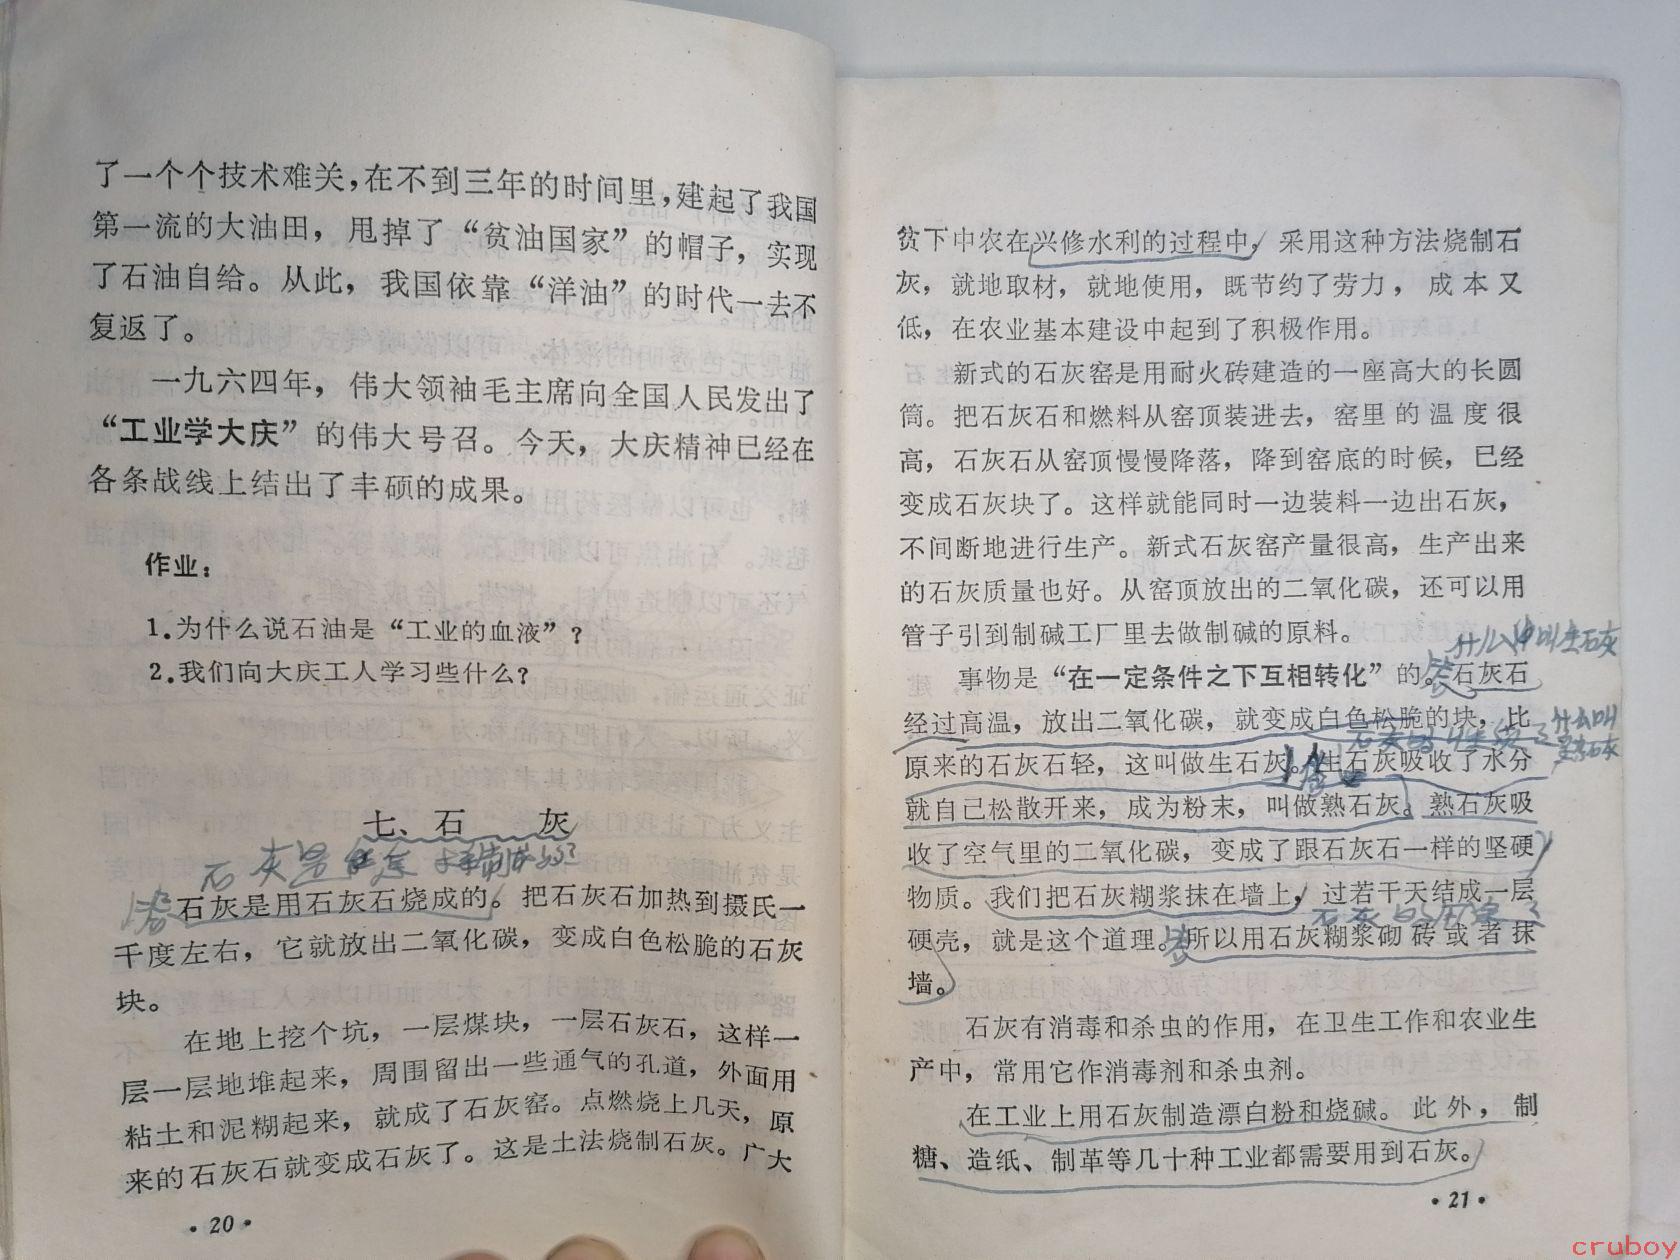 了一个个技术难关，在不到三年的时间里，建起了我国
第一流的大油田，甩掉了“贫油国家”的帽子，实现
了石油自给。从此，我国依靠“洋油”的时代一去不
复返了。
一九六四年，伟大领袖毛主席向全国人民发出了
“工业学大庆”的伟大号召。今天，大庆精神已经在
各条战线上结出了丰硕的成果。
作业：
1.为什么说石油是“工业的血液”？
2.我们向大庆工人学习些什么？
七、石灰
石灰是
石灰是用石灰石烧成的。把石灰石加热到摄氏一
千度左右，它就放出二氧化碳，变成白色松脆的石灰
块。
在地上挖个坑，一层煤块，一层石灰石，这样一
层一层地堆起来，周围留出一些通气的孔道，外面用
粘土和泥糊起来，就成了石灰窑。点燃烧上几天，原
来的石灰石就变成石灰了。这是土法烧制石灰。广大
·20·
贫下中农在兴修水利的过程中，采用这种方法烧制石
灰，就地取材，就地使用，既节约了劳力，成本又
低，在农业基本建设中起到了积极作用。
新式的石灰窑是用耐火砖建造的一座高大的长圆
筒。把石灰石和燃料从窑顶装进去，窑里的温度很
高，石灰石从窑顶慢慢降落，降到窑底的时候，已经
变成石灰块了。这样就能同时一边装料一边出石灰，
不间断地进行生产。新式石灰窑产量很高，生产出来
的石灰质量也好。从窑顶放出的二氧化碳，还可以用
管子引到制碱工厂里去做制碱的原料。
叫生石灰
事物是“在一定条件之下互相转化”的。石灰石
经过高温，放出二氧化碳，就变成白色松脆的块，比
什么叫
石灰
原来的石灰石轻，这叫做生石灰。生石灰吸收了水分
就自己松散开来，成为粉末，叫做熟石灰。熟石灰吸
收了空气里的二氧化碳，变成了跟石灰石一样的坚硬
物质。我们把石灰糊浆抹在墙上，过若干天结成一层
石灰
硬壳，就是这个道理。所以用石灰糊浆砌砖或者抹
墙。
石灰有消毒和杀虫的作用，在卫生工作和农业生
产中，常用它作消毒剂和杀虫剂。
在工业上用石灰制造漂白粉和烧碱。此外，制
糖、造纸、制革等几十种工业都需要用到石灰。
·21·
cruboy